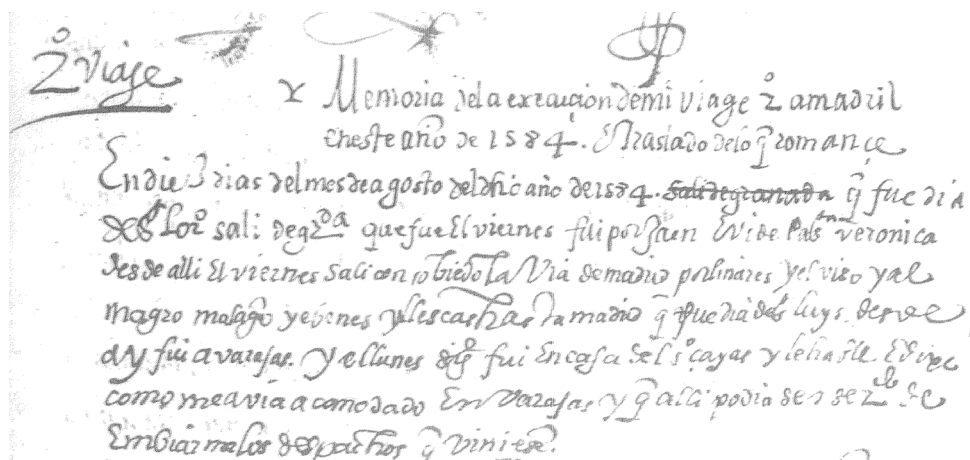 2º Viaje
Memoria dela execuçion de mi viage 2º a madril
eneste año de 1584. El traslado delo q̃ romançe
En diez dias del mes de agosto del dho año de 1584. sali de granada q̃ fue dia
de S Lorº sali de grda que fue El viernes fui por Jaen E vi de la sta veronica
desde alli El viernes sali con la Via de madrid por linares y el viso y al
magro malagõ y evenes yllescas hasta madrid q̃ fue dia de s luys
fui a varajas. y el lunes fui En casa del s.º çayas y le hable E dixe
como me avia acomodado En Varajas y q̃ alli podia desde
Embiarme los despachos q̃ viniesẽ.